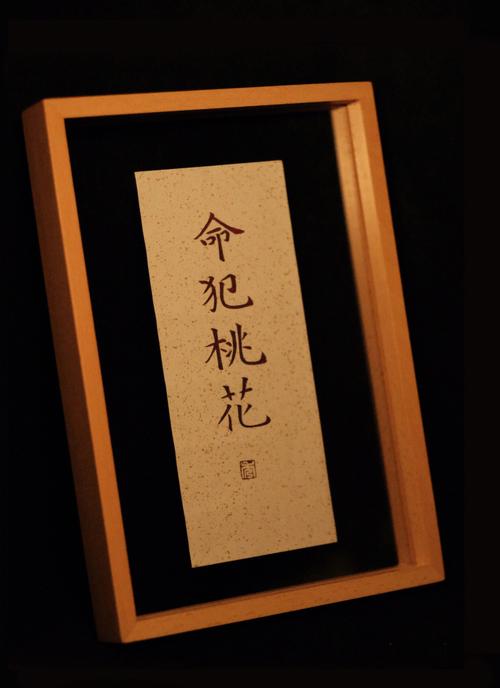 命犯桃花